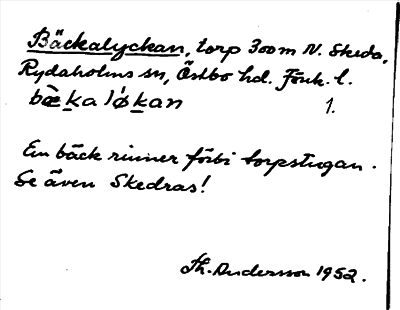 Bäckalyckan, torp 300 m N. Skeda,
Rydaholms sn, Östbo hd. Jönk. l.
bæ̀kaló̵kan 1.
En bäck rinner förbi torpstugan.
Se även Skedras!
Th. Andersson 1952.